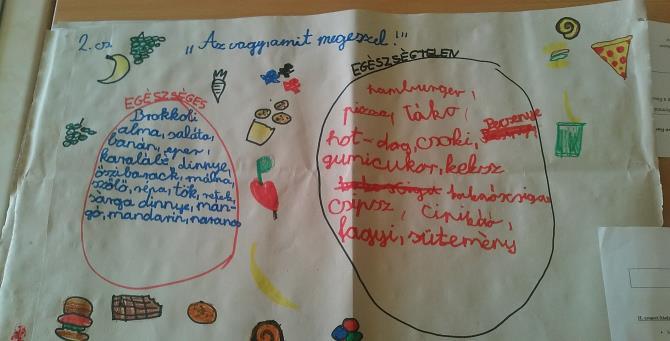 2. o.
„Az vagy, amit megeszel!"
EGÉSZSÉGES
Brokkoli
alma, saláta,
banán, eper,
karalábé, dinnye,
őszibarack, málna,
szőlő, répa, tök, retek,
sárga dinnye, man-
gó, mandarin, narancs
EGÉSZSÉGTELEN
hamburger,
pizza, Táko,
hot-dog, csoki,
gumicukor, keksz
csipsz,
fagyi, sütemény